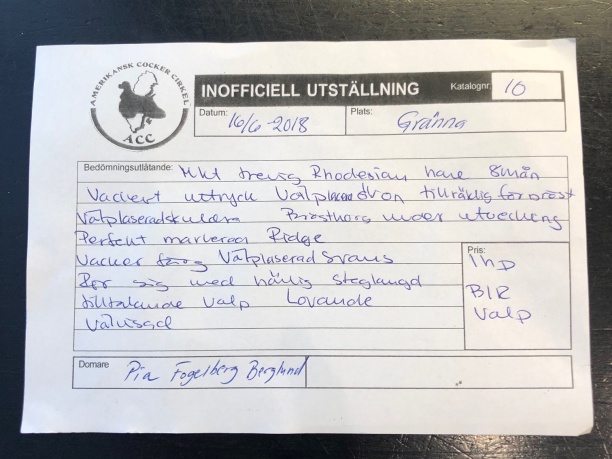 AMERIKANSK COCKER CIRKEL
ACC
INOFFICIELL UTSTÄLLNING
Katalognr. 10
Datum: 16/6-2018
Plats: Gränna
Bedömningsutlåtande: Mkt trevig Rhodesian hane 8mån
Vackert uttryck Välplacerade öron tillräklig förbröst
Välplaseradskuldra Brösthorg under utvecking
Perfekt markerad Ridge
Vacker färg Välplaserad svans
Rör sig med härlig steglängd
tilltalande valp Lovande
Välvisad
Pris:
1 hp
BIR
Valp
Domare Pia Fogelberg Berglund